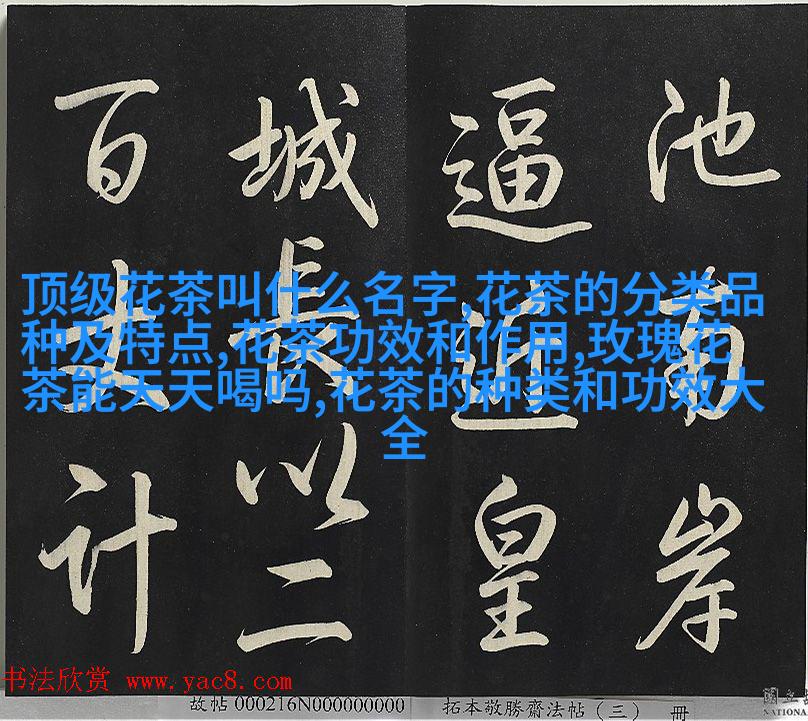 池南岸
逼近皇
城長以二
百丈計
顶级花茶叫什么名字,花茶的分类品
种及特点,花茶功效和作用,玫瑰花
茶能天天喝吗,花茶的种类和功效大
全
书法欣赏 www.yac8.com
故帖 000216N000000000 拓本敬勝齋法帖（三） 冊
國立
NATIONA